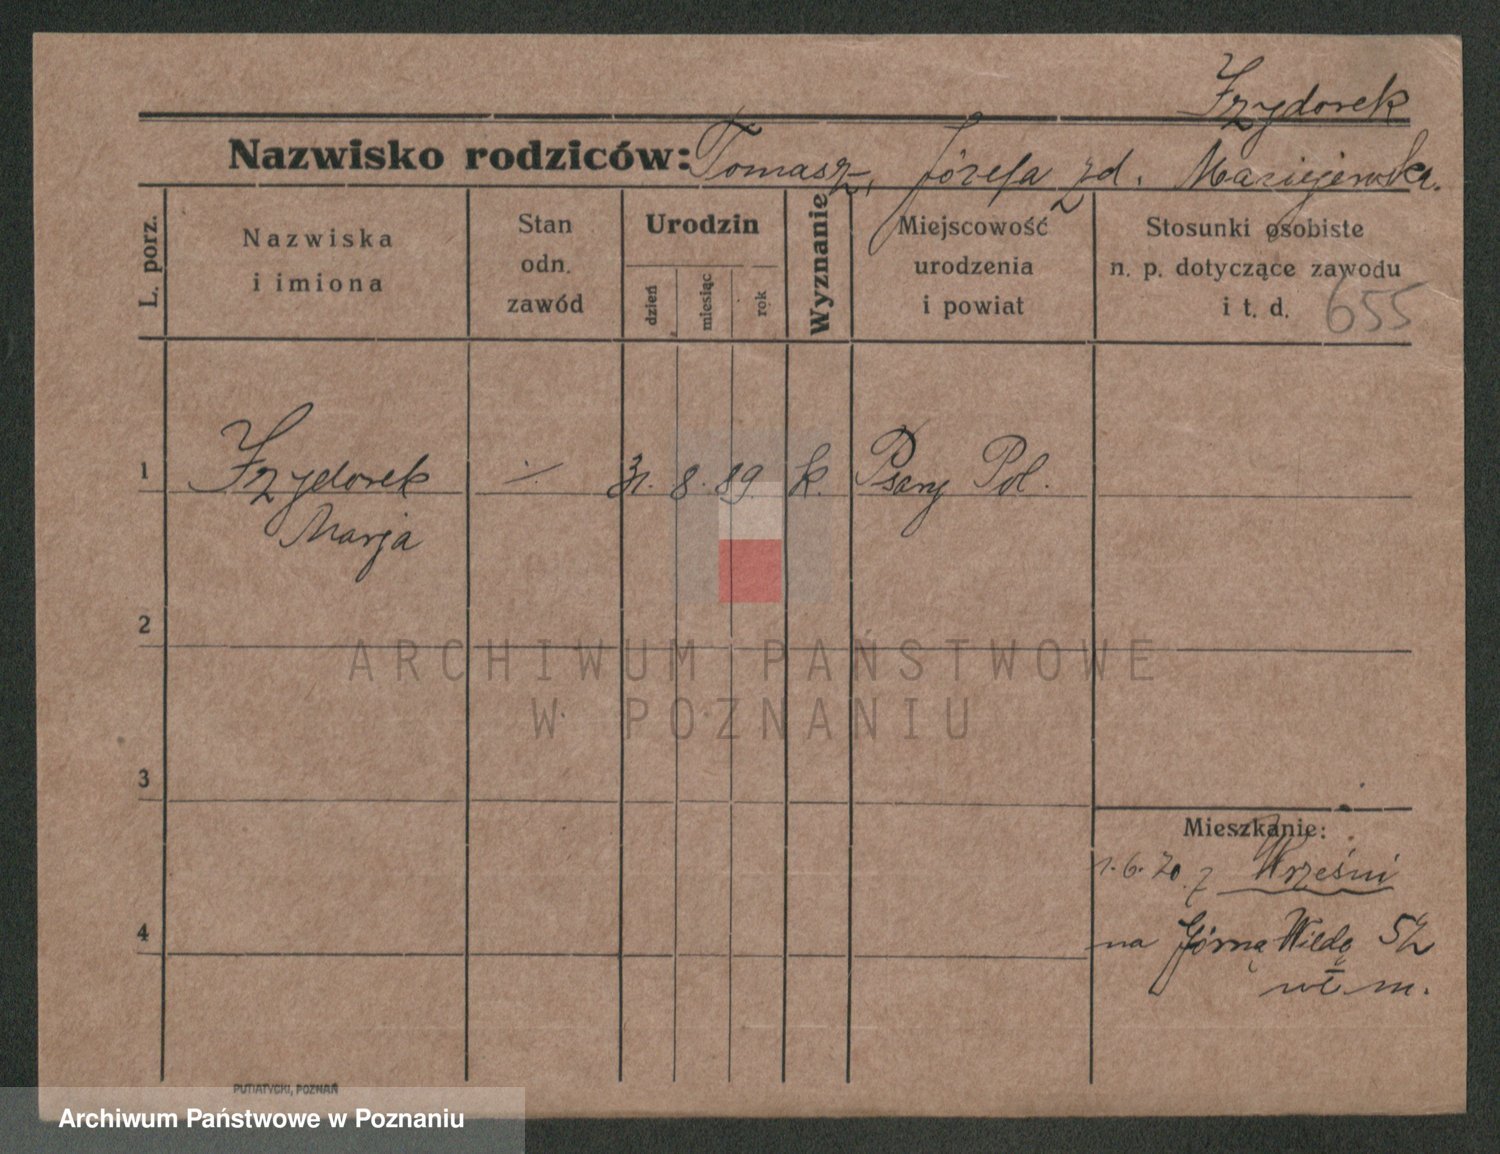 Izydorek
Nazwisko rodziców: Tomasz, Józefa zd. Maciejewska.
L. porz.
Nazwiska
i imiona
Stan
odn.
zawód
Urodzin
dzień
miesiąc
rok
Wyznanie
Miejscowość
urodzenia
i powiat
Stosunki osobiste
n. p. dotyczące zawodu
i t. d.
655
1 Izydorek ·/· 31. 8. 89 k. Psary Pol.
Marja
2
ARCHIWUM PAŃSTWOWE
W POZNANIU
3
Mieszkanie:
1. 6. 20. z Wrześni
4
na Górną Wildę
wł. m.
PUTIATYCKI, POZNAŃ
Archiwum Państwowe w Poznaniu